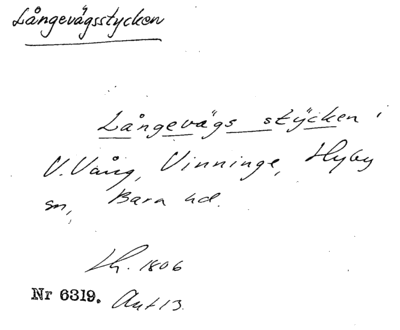 Långevägsstycken
Långevägs stÿcken i
V. Vång, Vinninge, Hyby
sn, Bara hd.
Lh. 1806
Nr 6319. Akt 13.